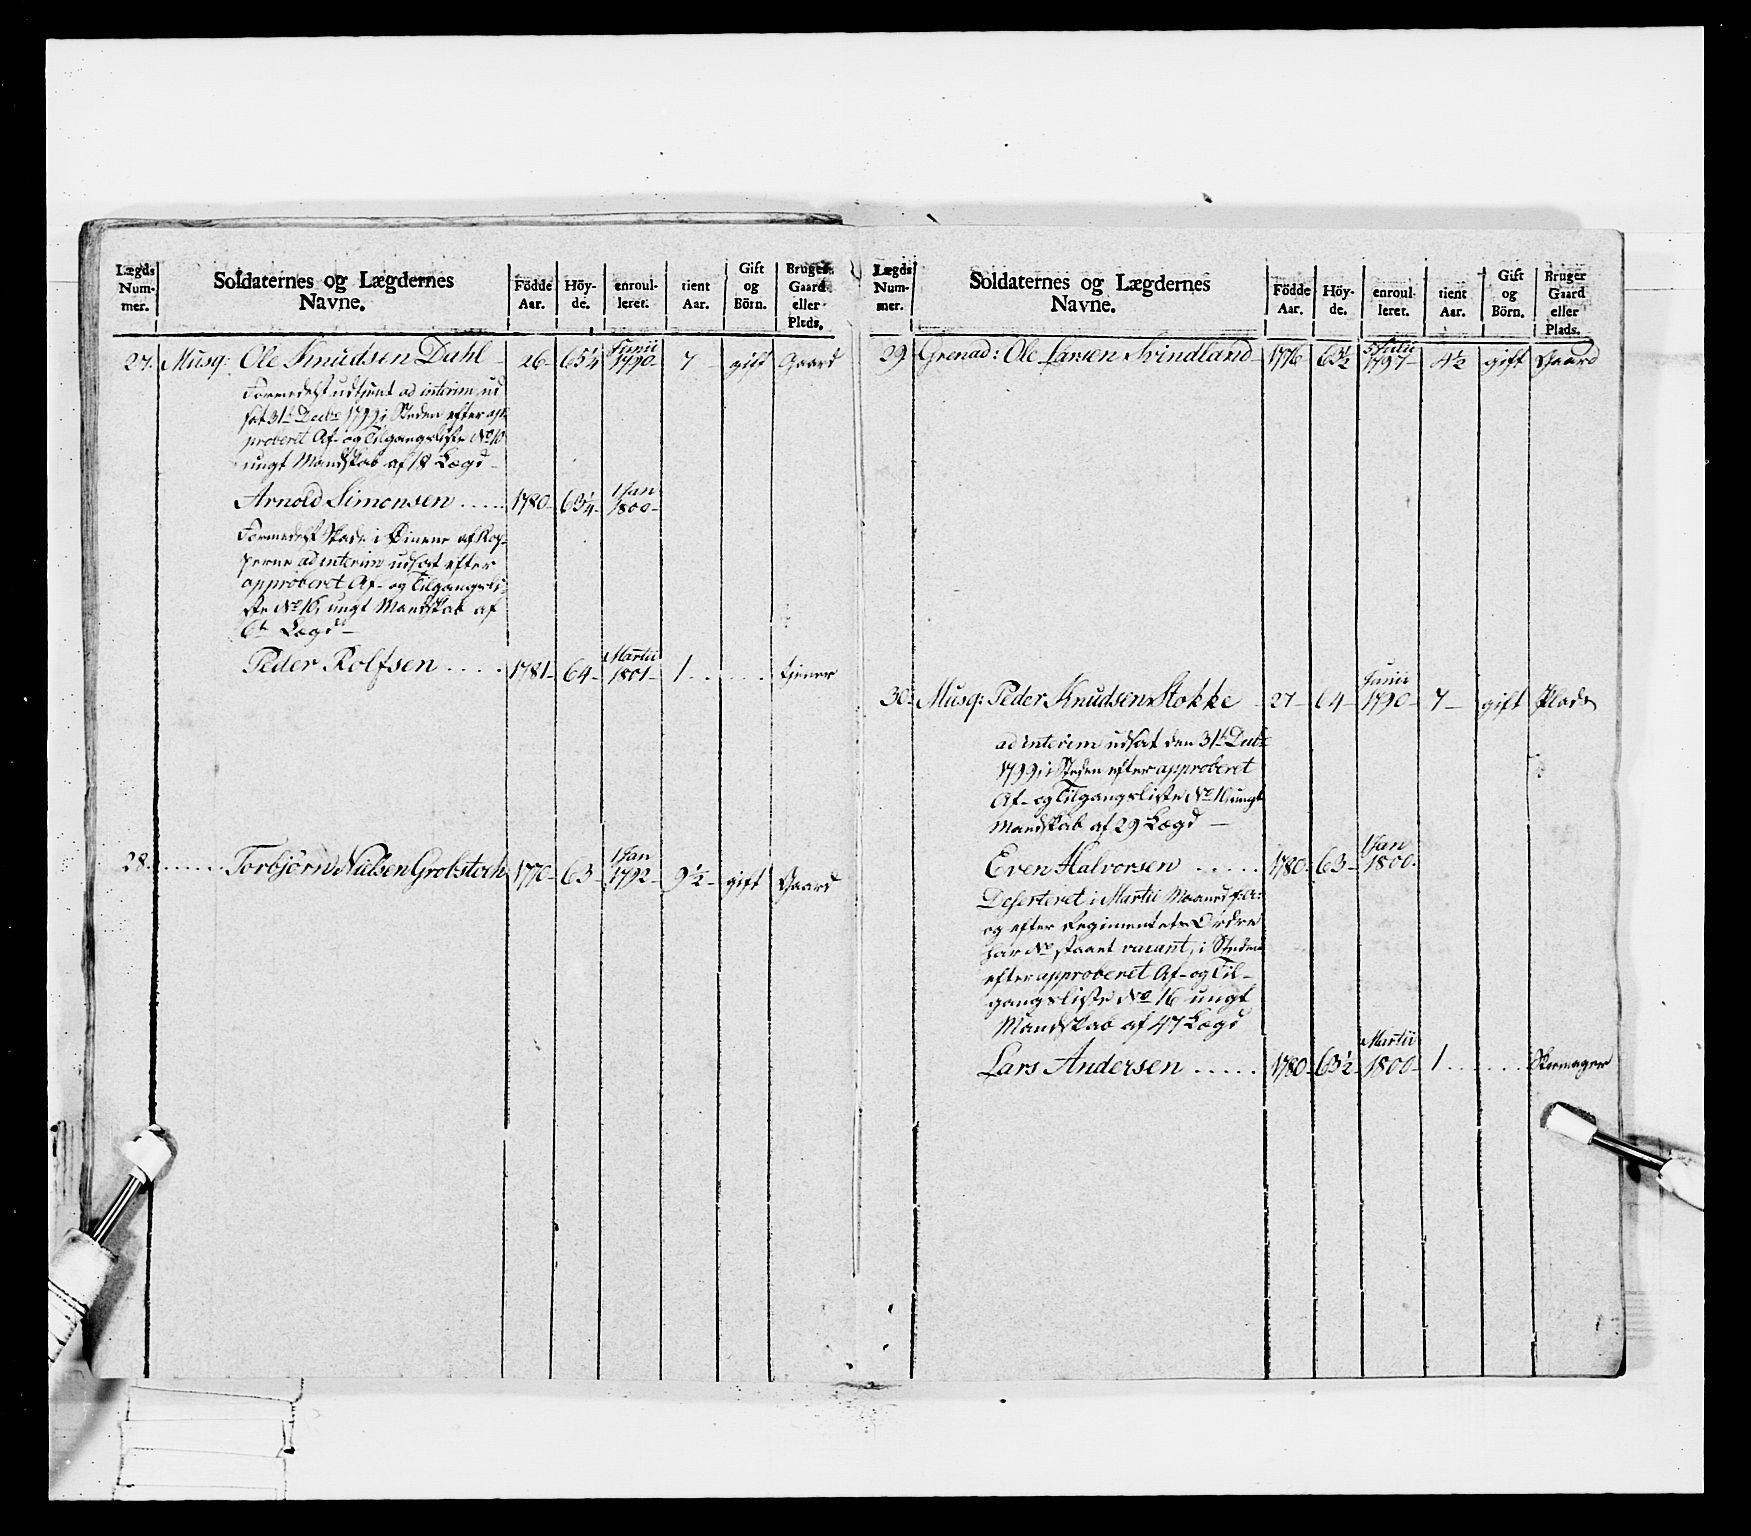 Lægds Num-mer.
Soldaternes og Lægdernes Navne.
Födde Aar.
Höy-de.
enroul-leret.
tient Aar.
Gift og Börn.
Bruger Gaard eller Plads.
27. Musq: Ole Knudsen Dahl 26- 65¼ Junii 1790- 7- gift Gaard
Formedelst udtient ad interim ud
sat 31t Decbr 1799, i Steden efter ap-
proberet Af- og Tilgangsliste No 16
ungt Mandskab af 18 Lægd-
Arnold Simonsen ..... 1780- 63¼- 1 Jan 1800-
Formedelst Skade i Öinene af Kop-
perne ad interim udsat efter
approberet Af- og Tilgangsli-
ste No 16, ungt Mandskab af
6te Lægd-
Peder Rolfsen ..... 1781- 64- Martii 1801- 1 .... tiener
28 ...... Torbjörn Nielsen Grobstoch 1770- 63- 1 Jan 1792- 9½- gift Gaard
Lægds Num-mer.
Soldaternes og Lægdernes Navne.
Födde Aar.
Höy-de.
enroul-leret.
tient Aar.
Gift og Börn.
Bruger Gaard eller Plads.
29 Grenad: Ole Larsen Svindland 1776 63½ 5 Julii 1797- 4½ gift Gaard
30- Musq: Peder Knudsen Stokke 27- 64- Junii 1790- 7- gift Plads
ad interim udsat den 31t Decbr
1799, i Steden efter approberet
Af- og Tilgangsliste No 16, ungt
Mandskab af 29 Lægd -
Even Halvorsen ..... 1780- 63- 1 Jan 1800-
Deserteret i Martii Maaned
og efter Regimentets Ordre
har No staaet vacant, i Steden
efter approberet Af- og Til-
gangsliste No 16 ungt
Mandskab af 47 Lægd
Lars Andersen ..... 1780- 63½- Martii 1800- 1 ..... Skomager